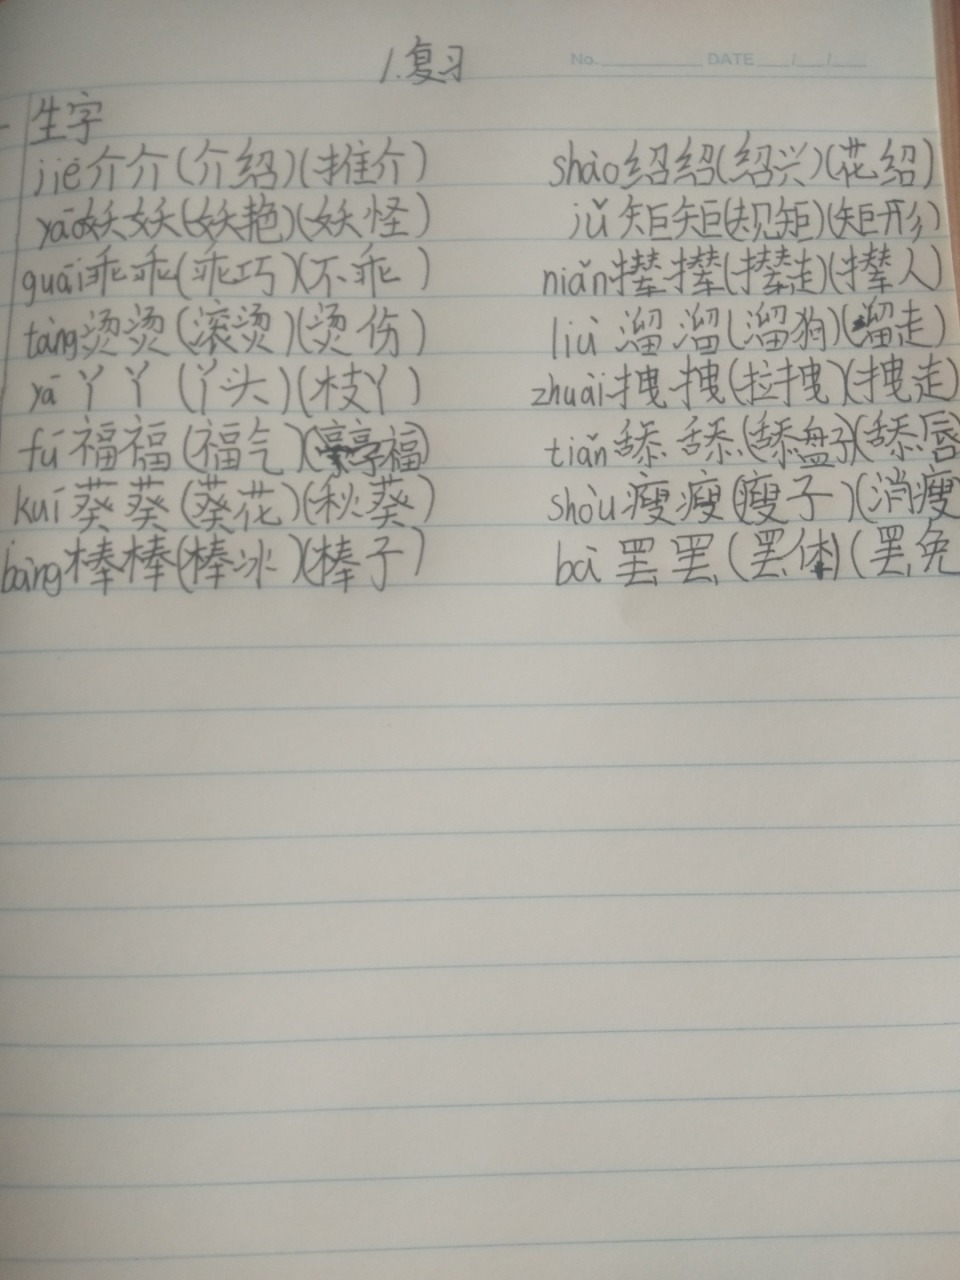 1.复习
No. DATE / /
生字
jiè介介(介绍)(推介) shào绍绍(绍兴)(花绍)
yāo妖妖(妖艳)(妖怪) jǔ矩矩(规矩)(矩形)
guāi乖乖(乖巧)(不乖) niǎn撵撵(撵走)(撵人)
tàng烫烫(滚烫)(烫伤) liù溜溜(溜狗)(溜走)
yā丫丫(丫头)(枝丫) zhuài拽拽(拉拽)(拽走)
fú福福(福气)(享福) tiǎn舔舔(舔盘子)(舔唇
kuí葵葵(葵花)(秋葵) shòu瘦瘦(瘦子)(消瘦
bàng棒棒(棒冰)(棒子) bà罢罢(罢休)(罢免